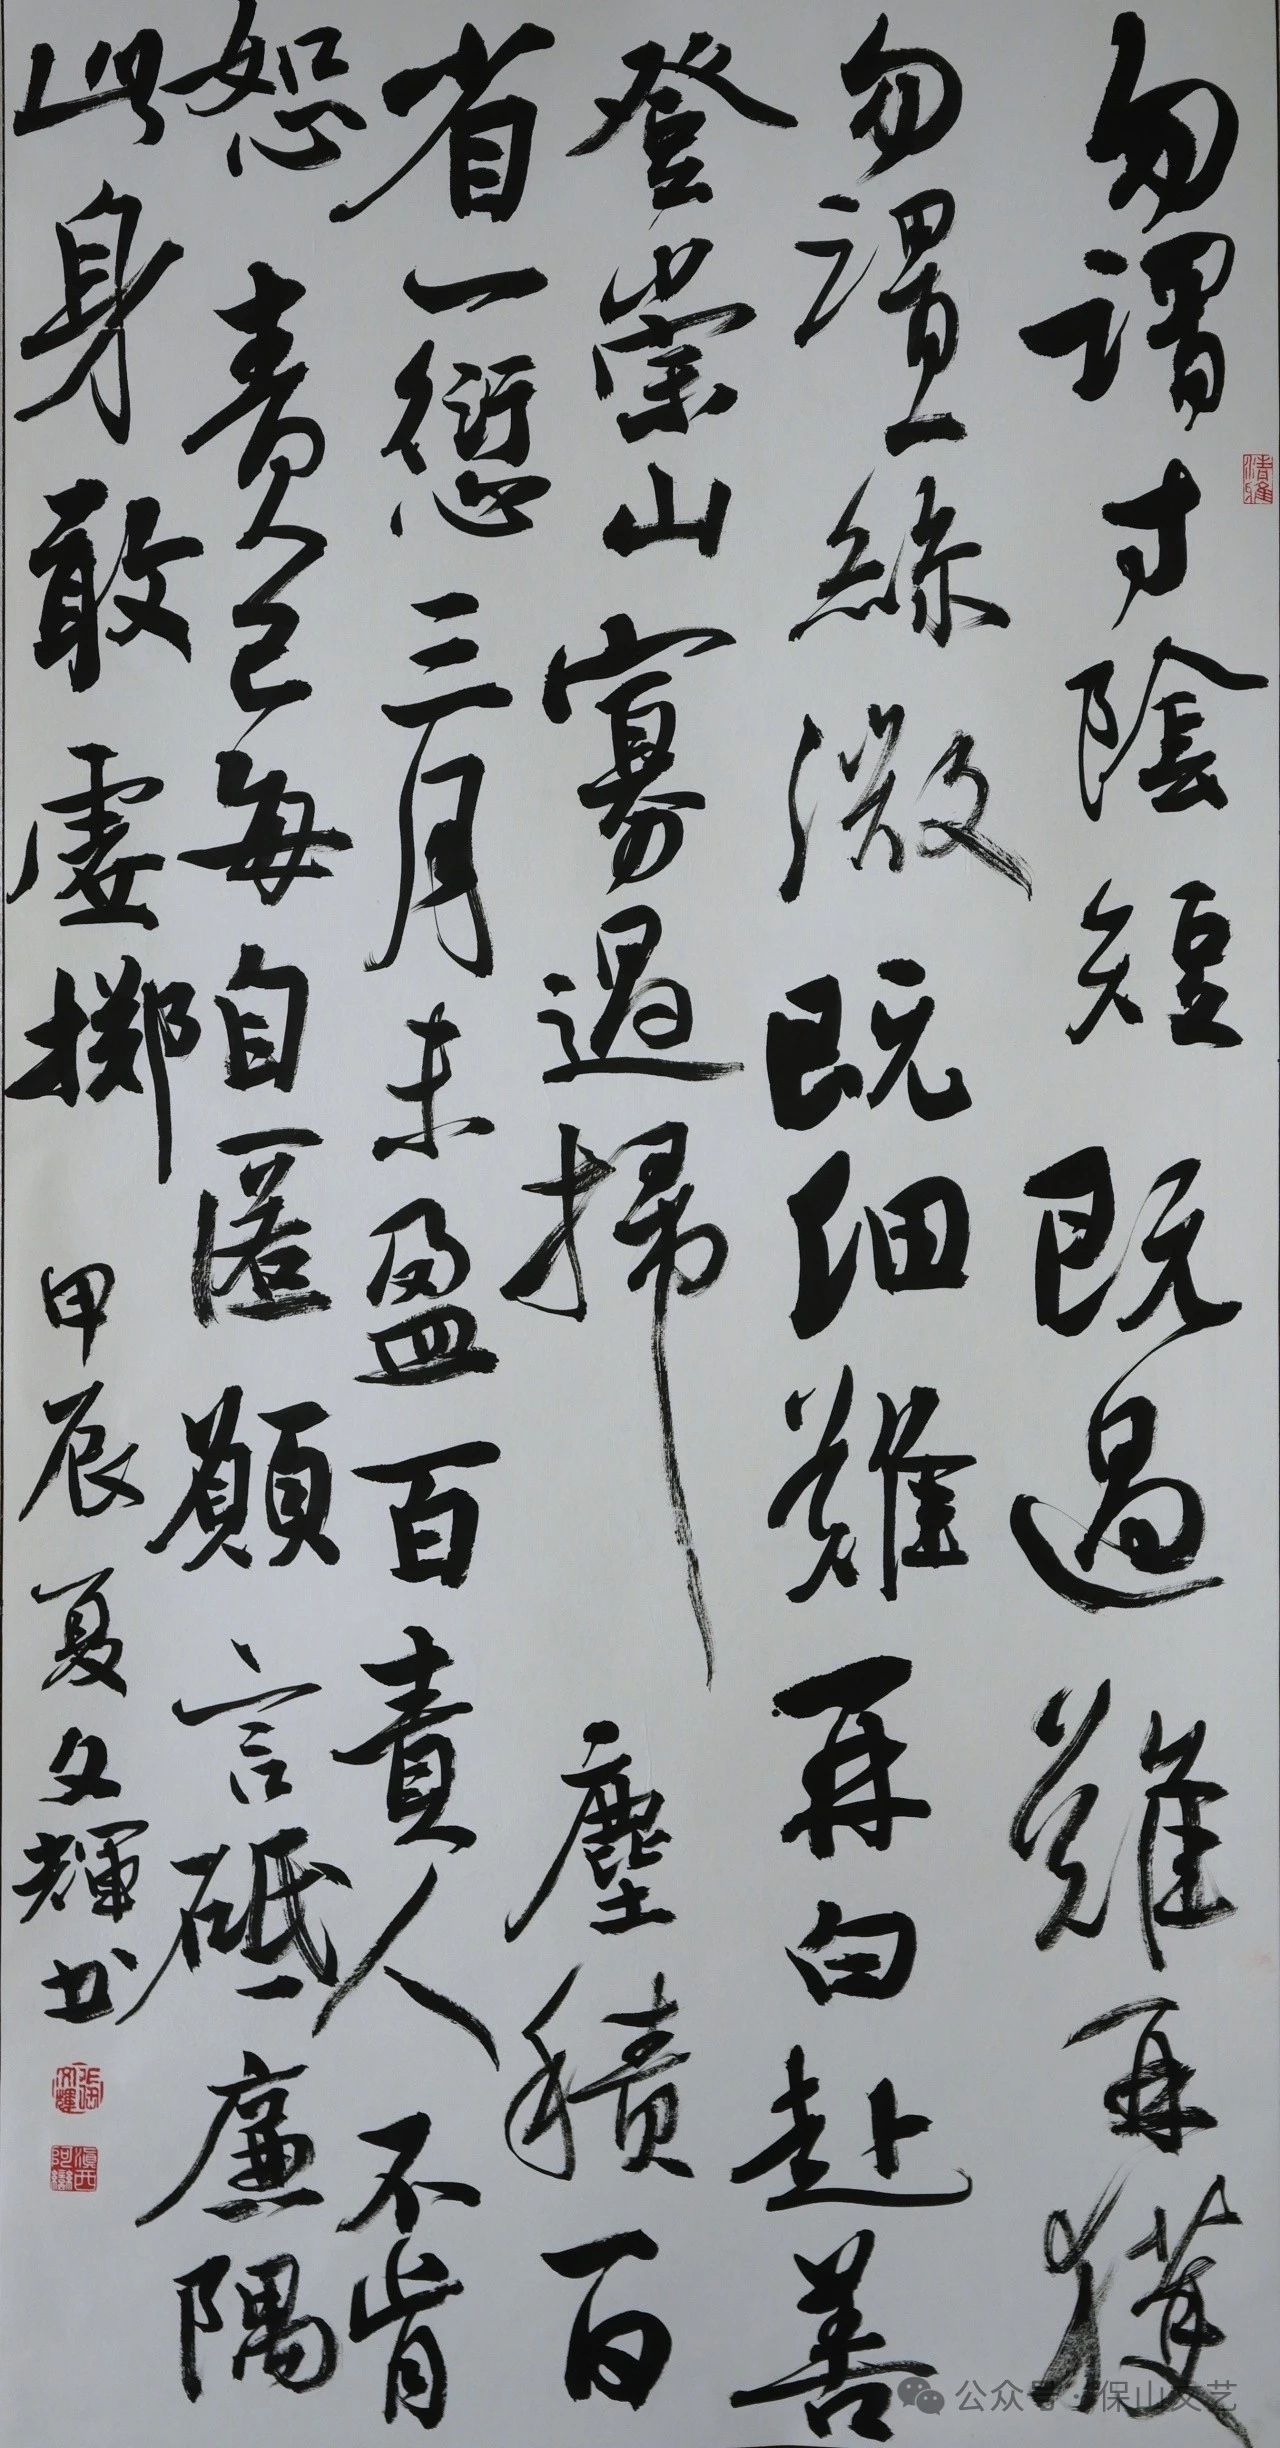 勿謂寸陰短既過難再獲
勿謂一絲微既細難再白赴善
登崇山寡過掃塵積百
省一愆三月未盈百責人不肯
恕責己每自匿願言砥廉隅
此身敢虛擲
甲辰夏文輝書
公众号·保山文艺